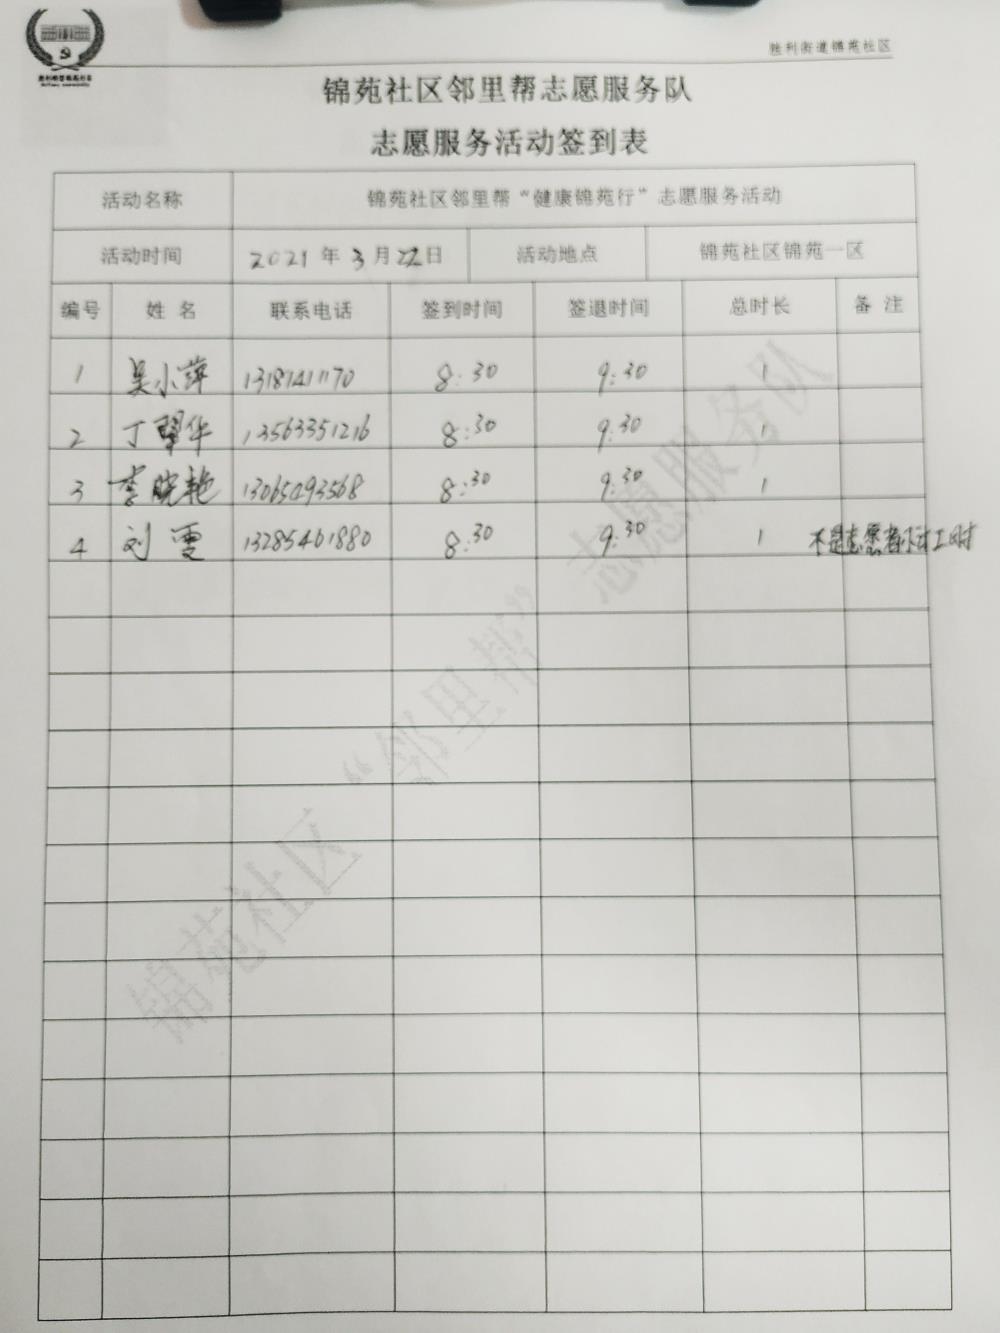 胜利街道锦苑社区
锦苑社区邻里帮志愿服务队
志愿服务活动签到表
活动名称 锦苑社区邻里帮“健康锦苑行”志愿服务活动
活动时间 2021年3月22日 活动地点 锦苑社区锦苑一区
编号 姓名 联系电话 签到时间 签退时间 总时长 备注
1 吴小萍 13181411170 8:30 9:30 1
2 丁翠华 13563351216 8:30 9:30 1
3 李晓艳 13065493568 8:30 9:30 1
4 刘雯 13285461880 8:30 9:30 1 不是志愿者不计工时
锦苑社区“邻里帮”志愿服务队